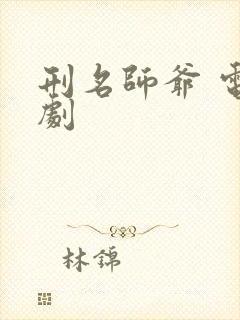 刑名師爺 電
劇
林錦